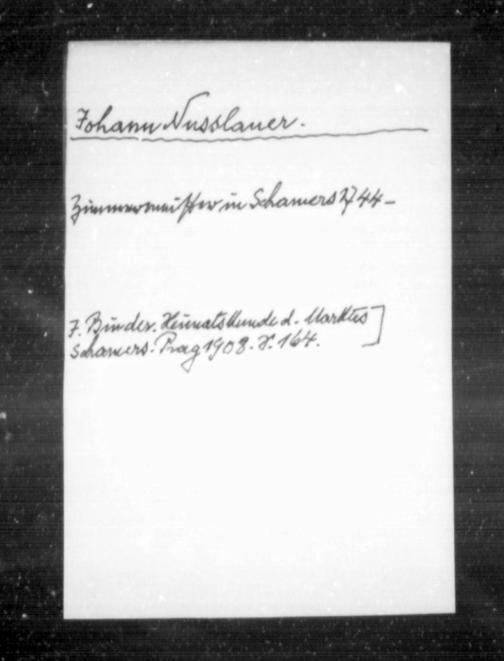 Johann Nusslauer.
Zimmermeister in Schamers 1744 –
J. Binder. Heimatskunde d. Marktes
Schamers. Prag 1908. S. 164.